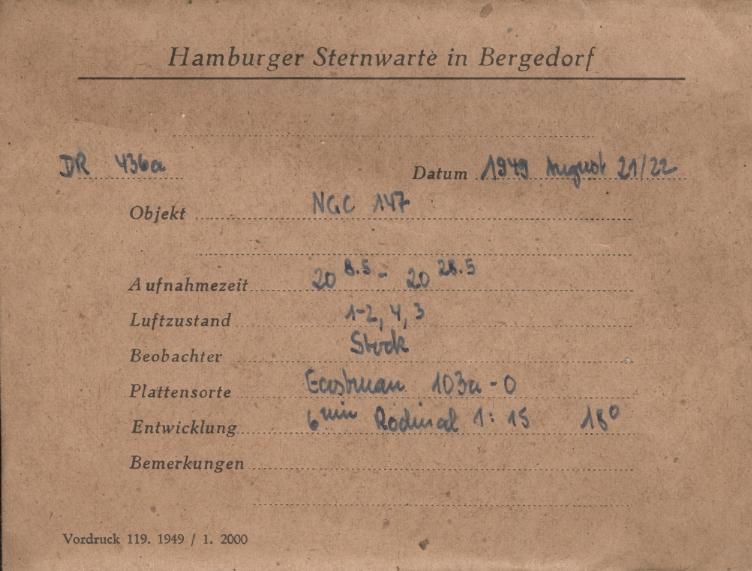 Hamburger Sternwarte in Bergedorf
DR 436a Datum 1949 August 21/22
Objekt NGC 147
Aufnahmezeit 20 8.5 - 20 28.5
Luftzustand 1-2, 4, 3
Beobachter Stock
Plattensorte Eastman 103a-O
Entwicklung 6 min Rodinal 1:15 18°
Bemerkungen
Vordruck 119. 1949 / 1. 2000